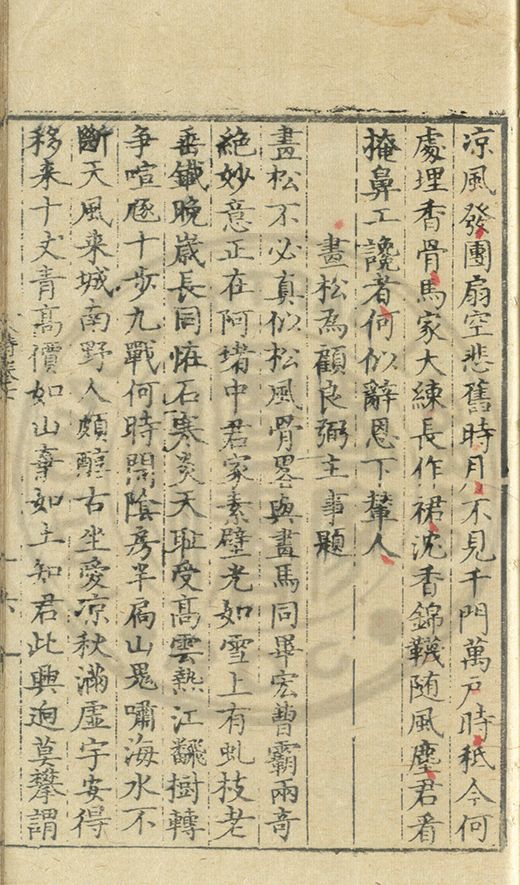 凉風發團扇空悲舊時月不見千門萬戸時秪今何
處埋香骨馬家大練長作裙沈香錦韈随風塵君看
掩鼻工讒者何似辭恩下輦人
畫松為顧良弼主事題
畫松不必真似松風骨畧與畫馬同畢宏曹霸兩奇
絶妙意正在阿堵中君家素壁光如雪上有虬枝老
垂鐵晩歳長同恠石寒炎天耻受高雲熱江飜樹轉
争喧豗十步九戰何時闋陰房半扃山鬼嘯海水不
斷天風来城南野人頗醉古坐愛凉秋滿虚宇安得
移来十丈青高價如山棄如土知君此興逈莫攀謂